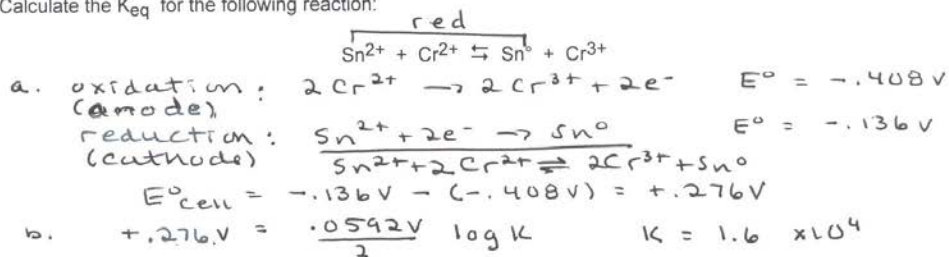 Calculate the Keq for the following reaction:
red
Sn2+ + Cr2+ ⇆ Sn° + Cr3+
a. oxidation: 2 Cr2+ → 2 Cr3+ + 2e- E° = -.408 V
(anode)
reduction: Sn2+ + 2e- → Sn° E° = -.136 V
(cathode)
Sn2+ + 2 Cr2+ ⇌ 2Cr3+ + Sn°
E°cell = -.136 V - (-.408 V) = +.276V
b. +.276 V = .0592V/2 log K K = 1.6 x104